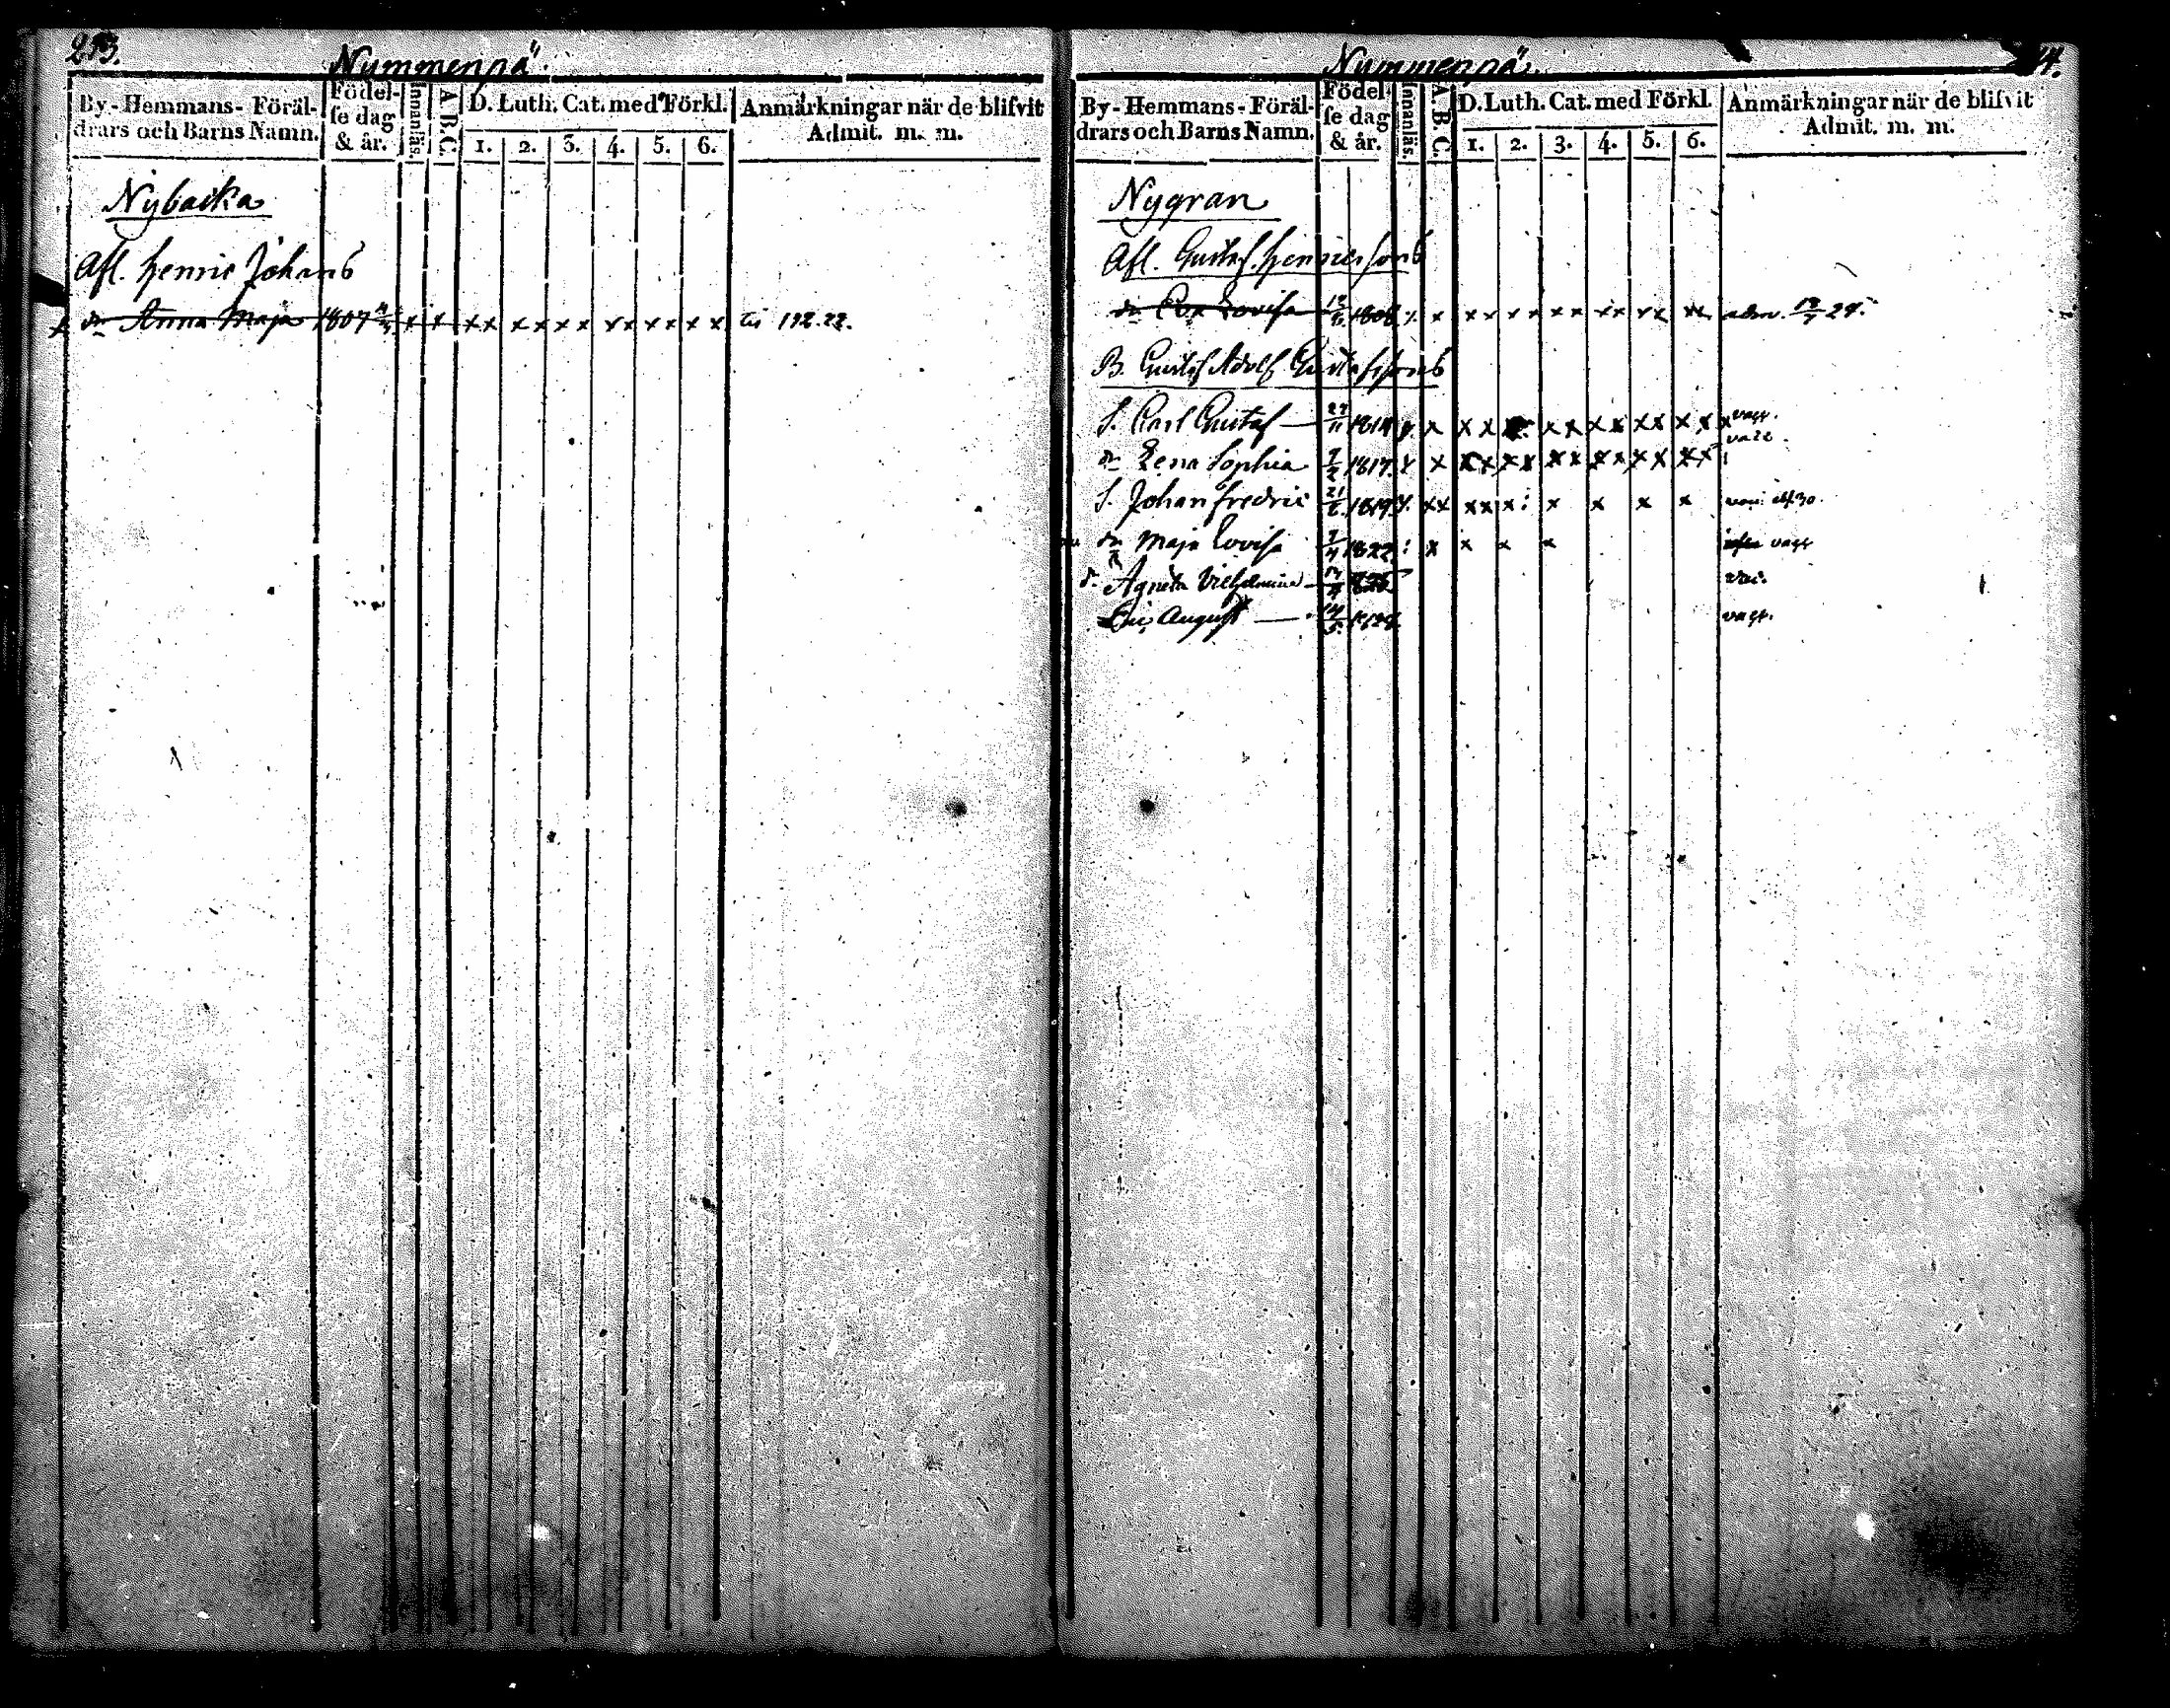 253.
Nummenpä
By-Hemmans-Föräl-
drars och Barns Namn.
Födel-
ſe dag
& år.
Innanläs.
A. B. C.
D. Luth. Cat. med Förkl.
1. 2. 3. 4. 5. 6.
Anmärkningar när de bliſvit
Admit. m. m.
Nybacka
Afl. Henric Johans
x dr Anna Maja 1807 x x xx xx xx xx xx xx 192.22.
4.
Nummenpä
By-Hemmans-Föräl-
drars och Barns Namn.
Födel-
ſe dag
& år.
Innanläs.
A. B. C.
D. Luth. Cat. med Förkl.
1. 2. 3. 4. 5. 6.
Anmärkningar när de bliſvit
Admit. m. m.
Nygran
Afl. Gustaf Henricsons
dr Eva Lovisa 1808 x xx xx xx xx xx xx adm.
B. Gustaf Adolf Gustafssons
S. Carl Gustaf 1814 x x x xx xx xx xx
dr Lena Sophia 1817. x x xx xx xx xx xx
S. Johan Fredric 21/6 1819 xx xx x x x x x
dr Maja Lovisa 1822 x x x x vacc
d. Agneta Vilhelmina
August